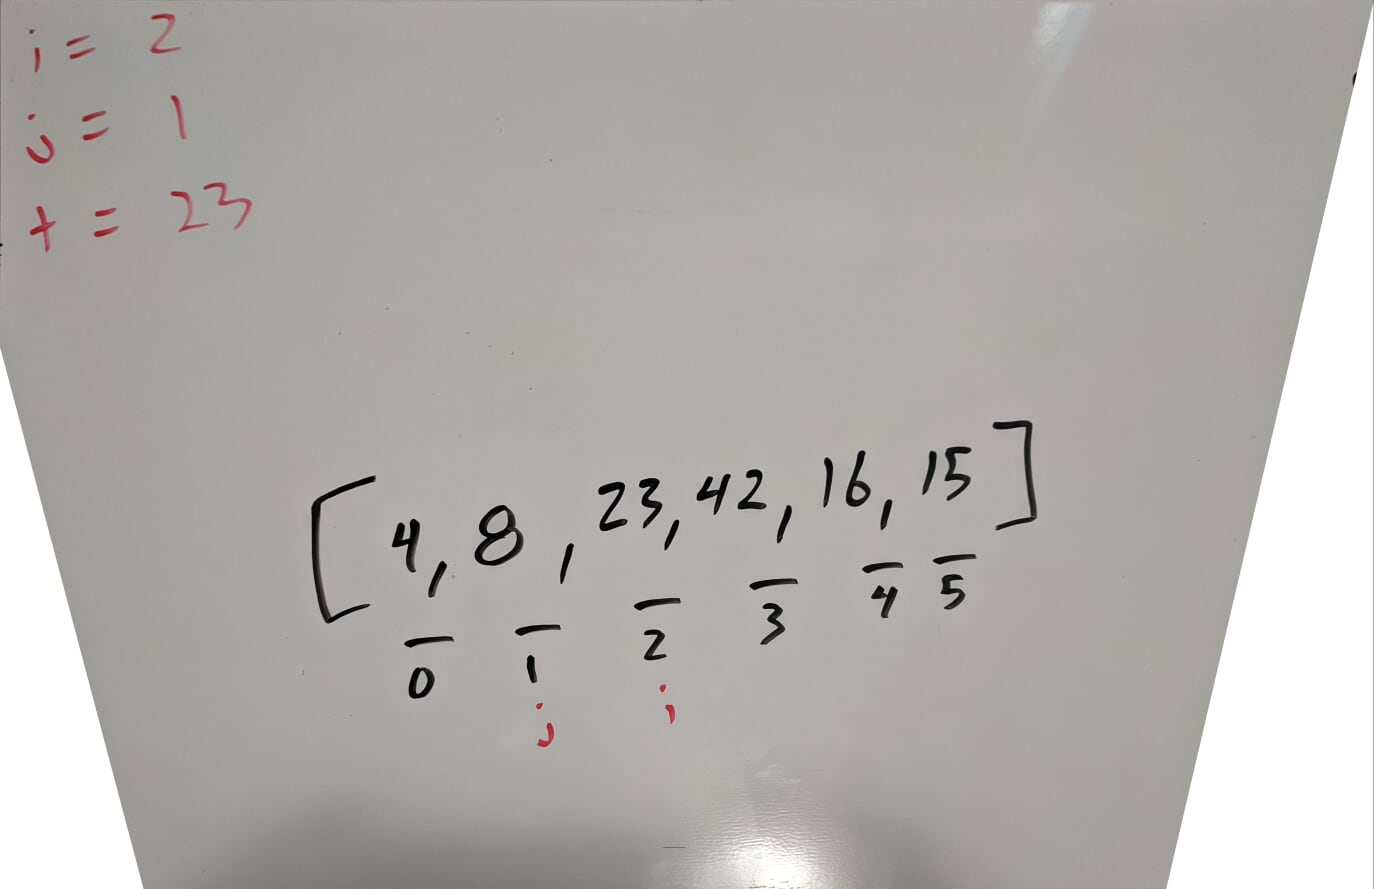 i = 2
j = 1
t = 23
[4, 8, 23, 42, 16, 15]
0 1 2 3 4 5
j i